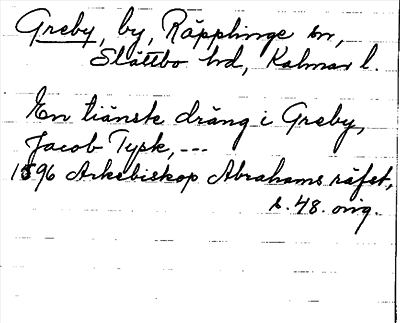 Greby, by, Räpplinge sn,
Slättbo hd, Kalmar l.
En tiänste dräng i Greby,
Jacob Tysk, ---
1596 Arkebiskop Abrahams räfst,
s. 48. orig.